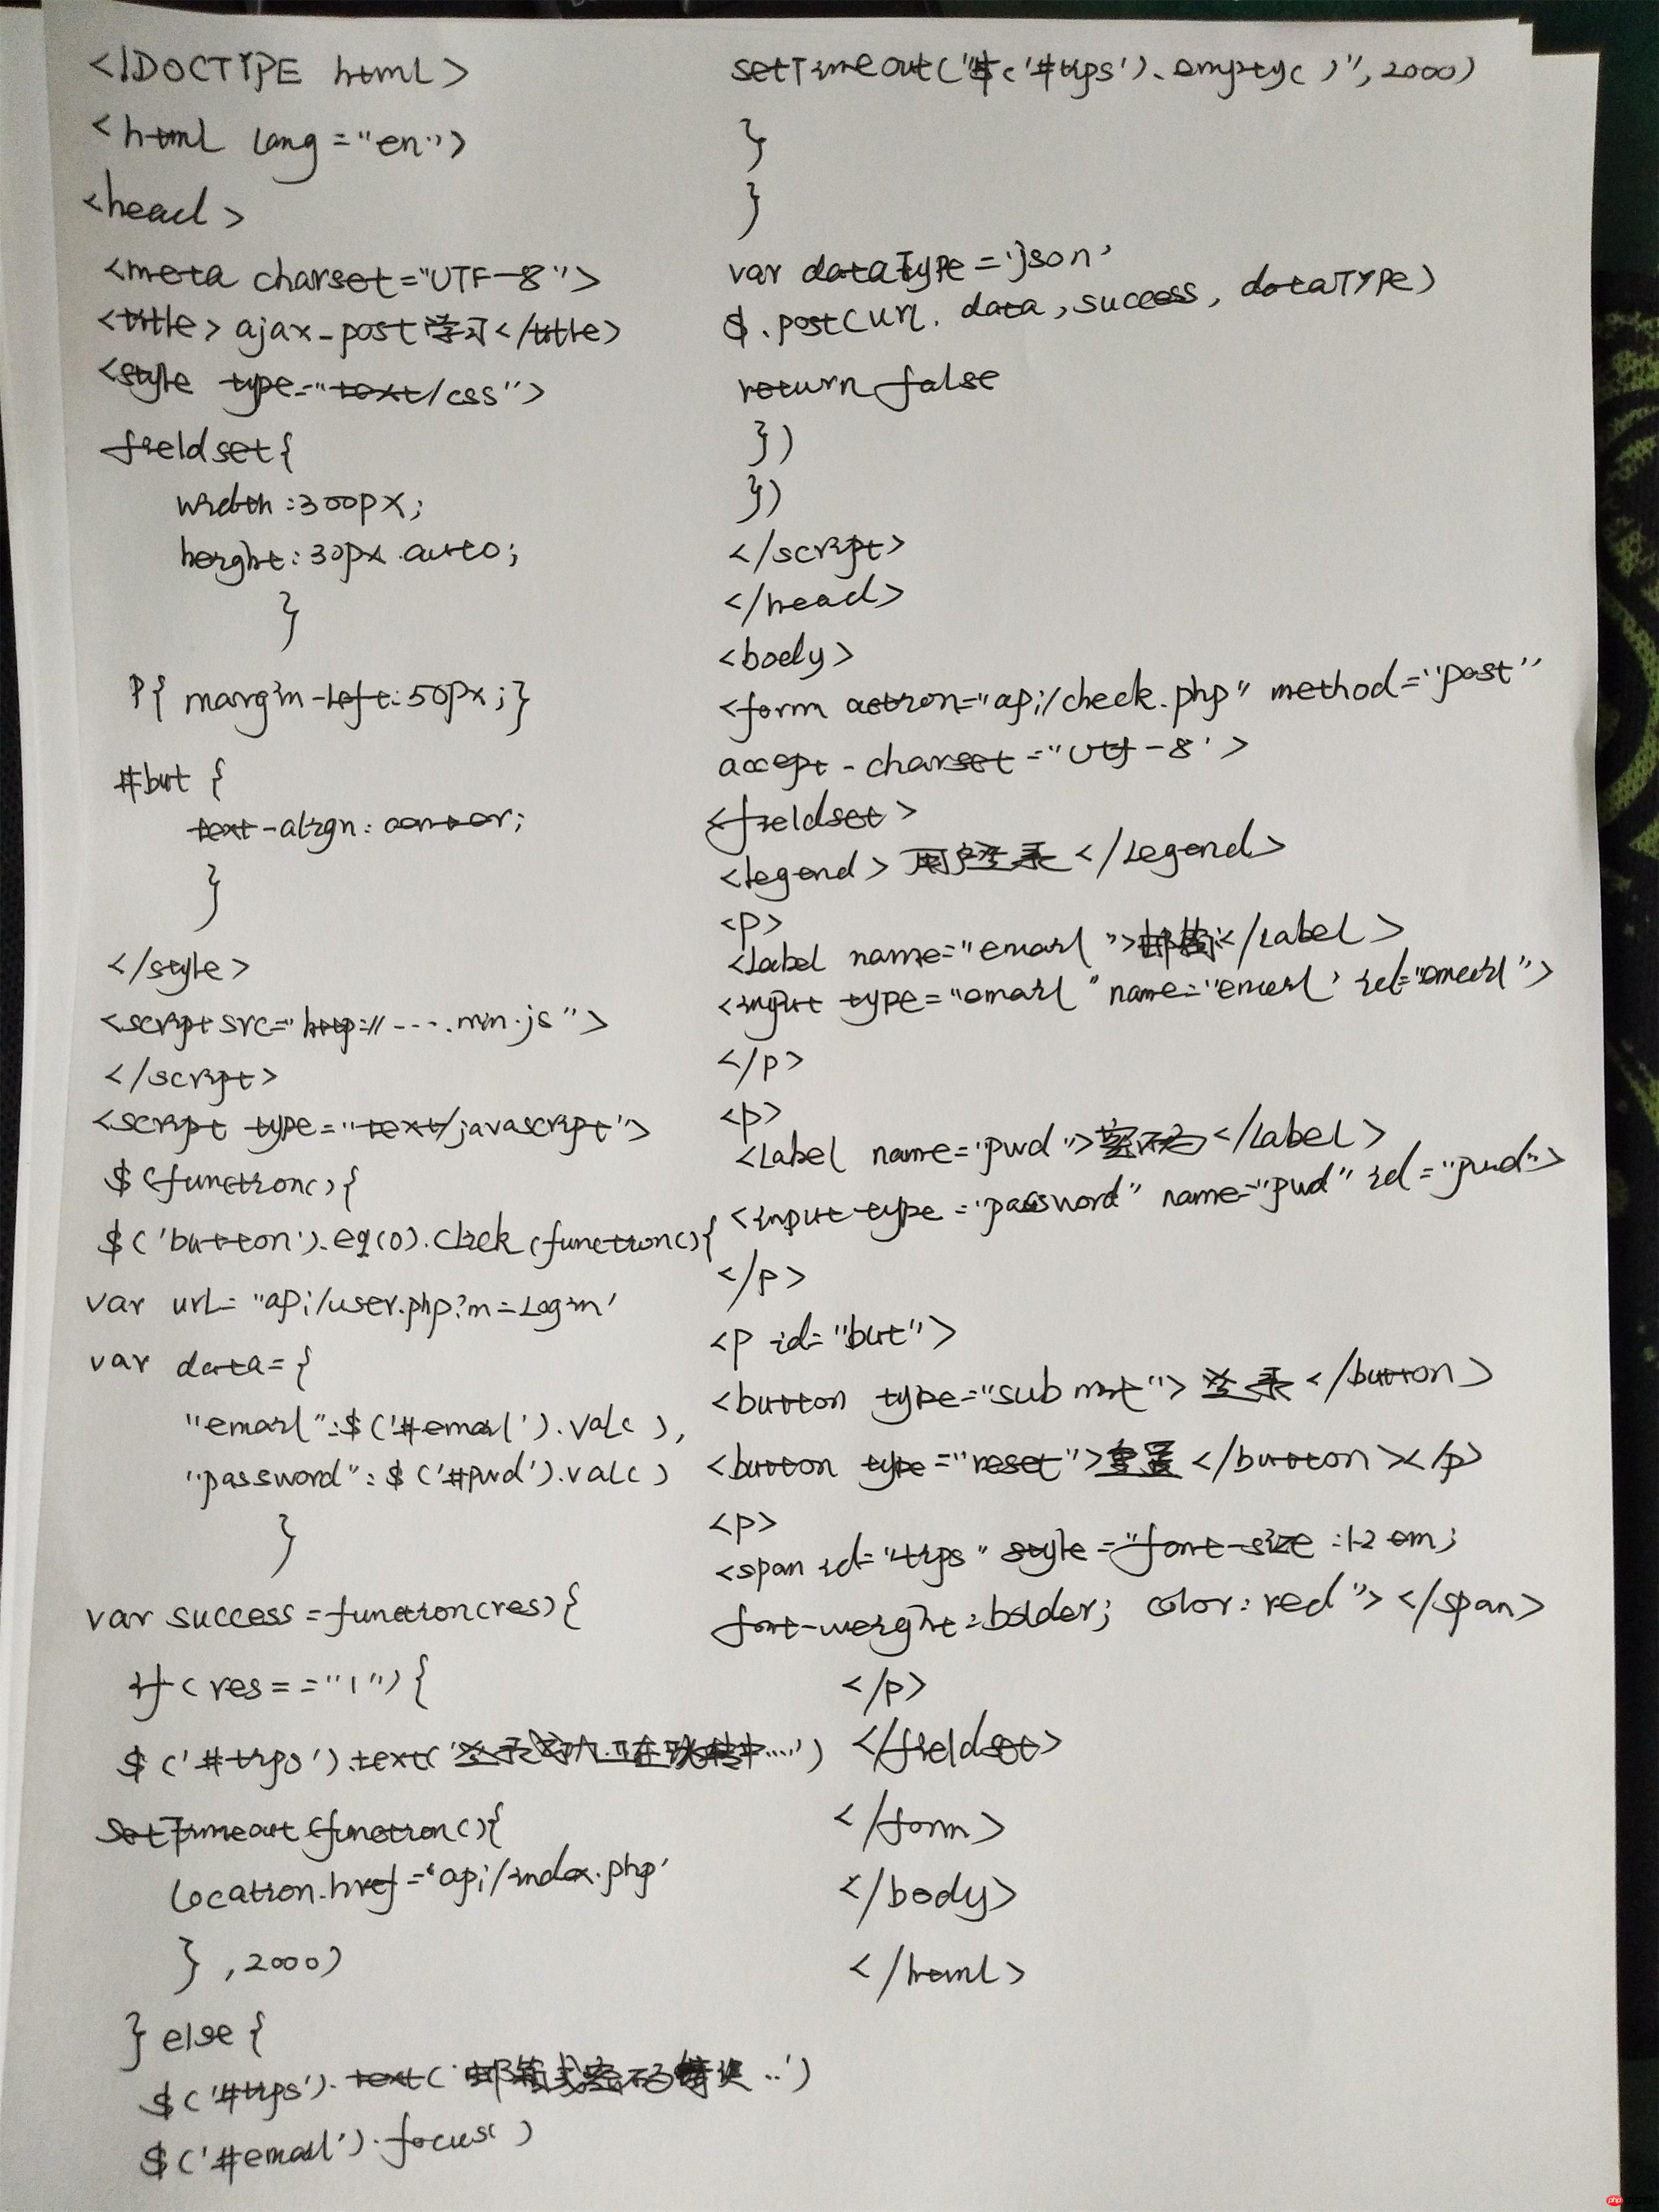 <!DOCTYPE html>
<html lang="en">
<head>
<meta charset="UTF-8">
<title>ajax-post学习</title>
<style type="text/css">
fieldset{
width:300px;
height:30px auto;
}
P{ margin-left:50px;}
#but {
text-align:center;
}
</style>
<script src="http://----.min.js">
</script>
<script type="text/javascript">
$(function(){
$('button').eq(0).click(function(){
var url="api/user.php?m=login'
var data={
"email":$('#email').val(),
"password":$('#pwd').val()
}
var success=function(res){
if(res=="1"){
$('#tips').text('登录成功,正在跳转中....')
setTimeout(function(){
location.href='api/index.php'
},2000)
}else{
$('#tips').text('邮箱或密码错误..')
$('#email').focus()
setTimeout("$('#tips').empty()",2000)
}
}
var dataType='json'
$.post(url, data,success, dataTYPe)
return false
})
})
</script>
</head>
<body>
<form action="api/check.php" method="post"
accept-charset="Utf-8'>
<fieldset>
<legend>用户登录</legend>
<p>
<label name="email">邮箱:</label>
<input type="email" name="email' id="email">
</p>
<p>
<label name="pwd">密码</label>
<input type="password" name="pwd" id="pwd">
</p>
<p id="but">
<button type="submit">登录</button>
<button type="reset">重置</button></p>
<p>
<span id="tips" style="font-size:12em;
font-weight:bolder; color:red"></span>
</p>
</fieldset>
</form>
</body>
</html>
php